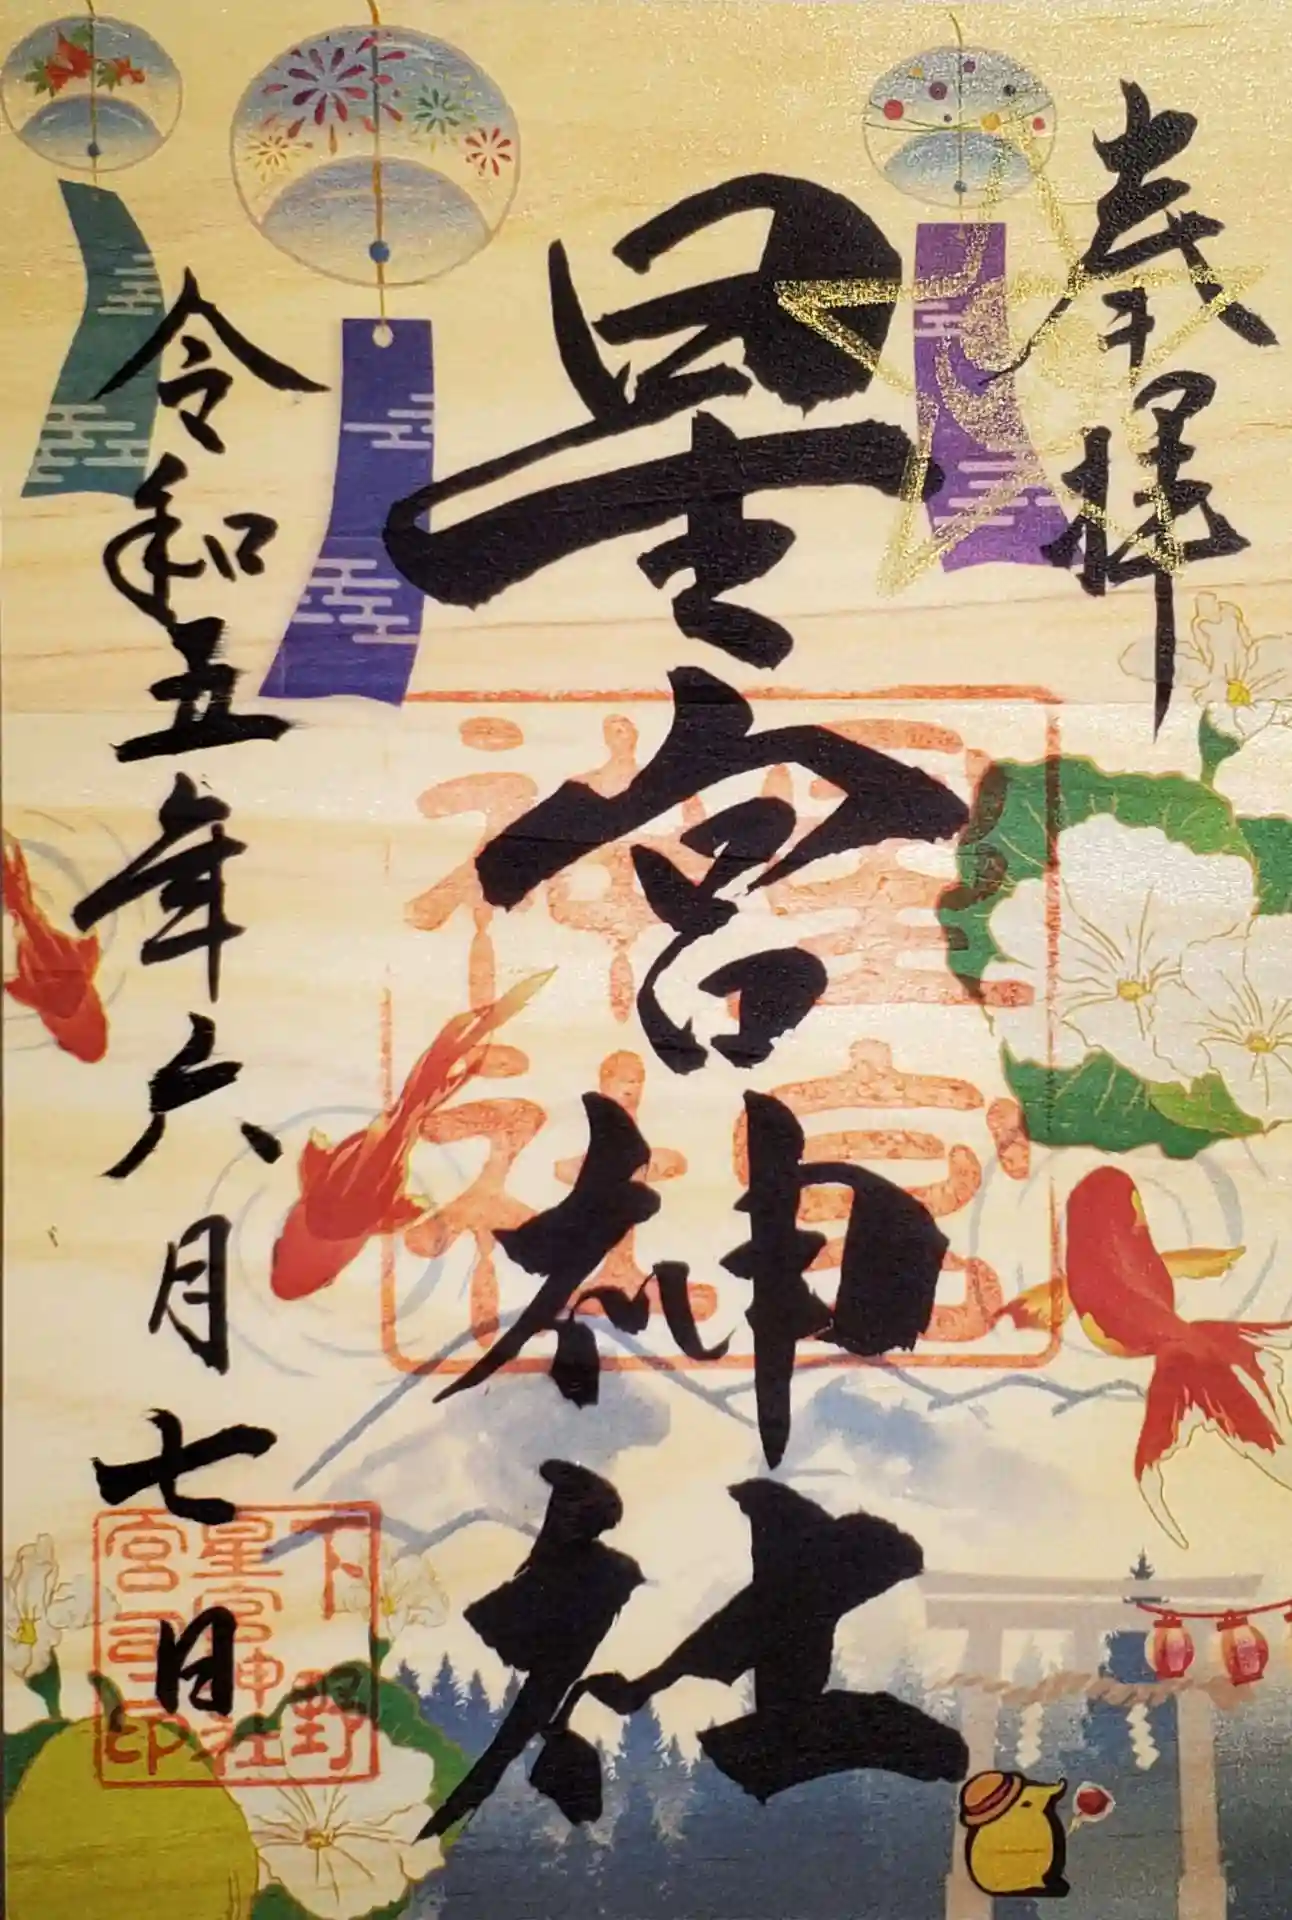 奉拝
星宮神社
星宮神社
令和五年六月七日
下野星宮神社宮司印